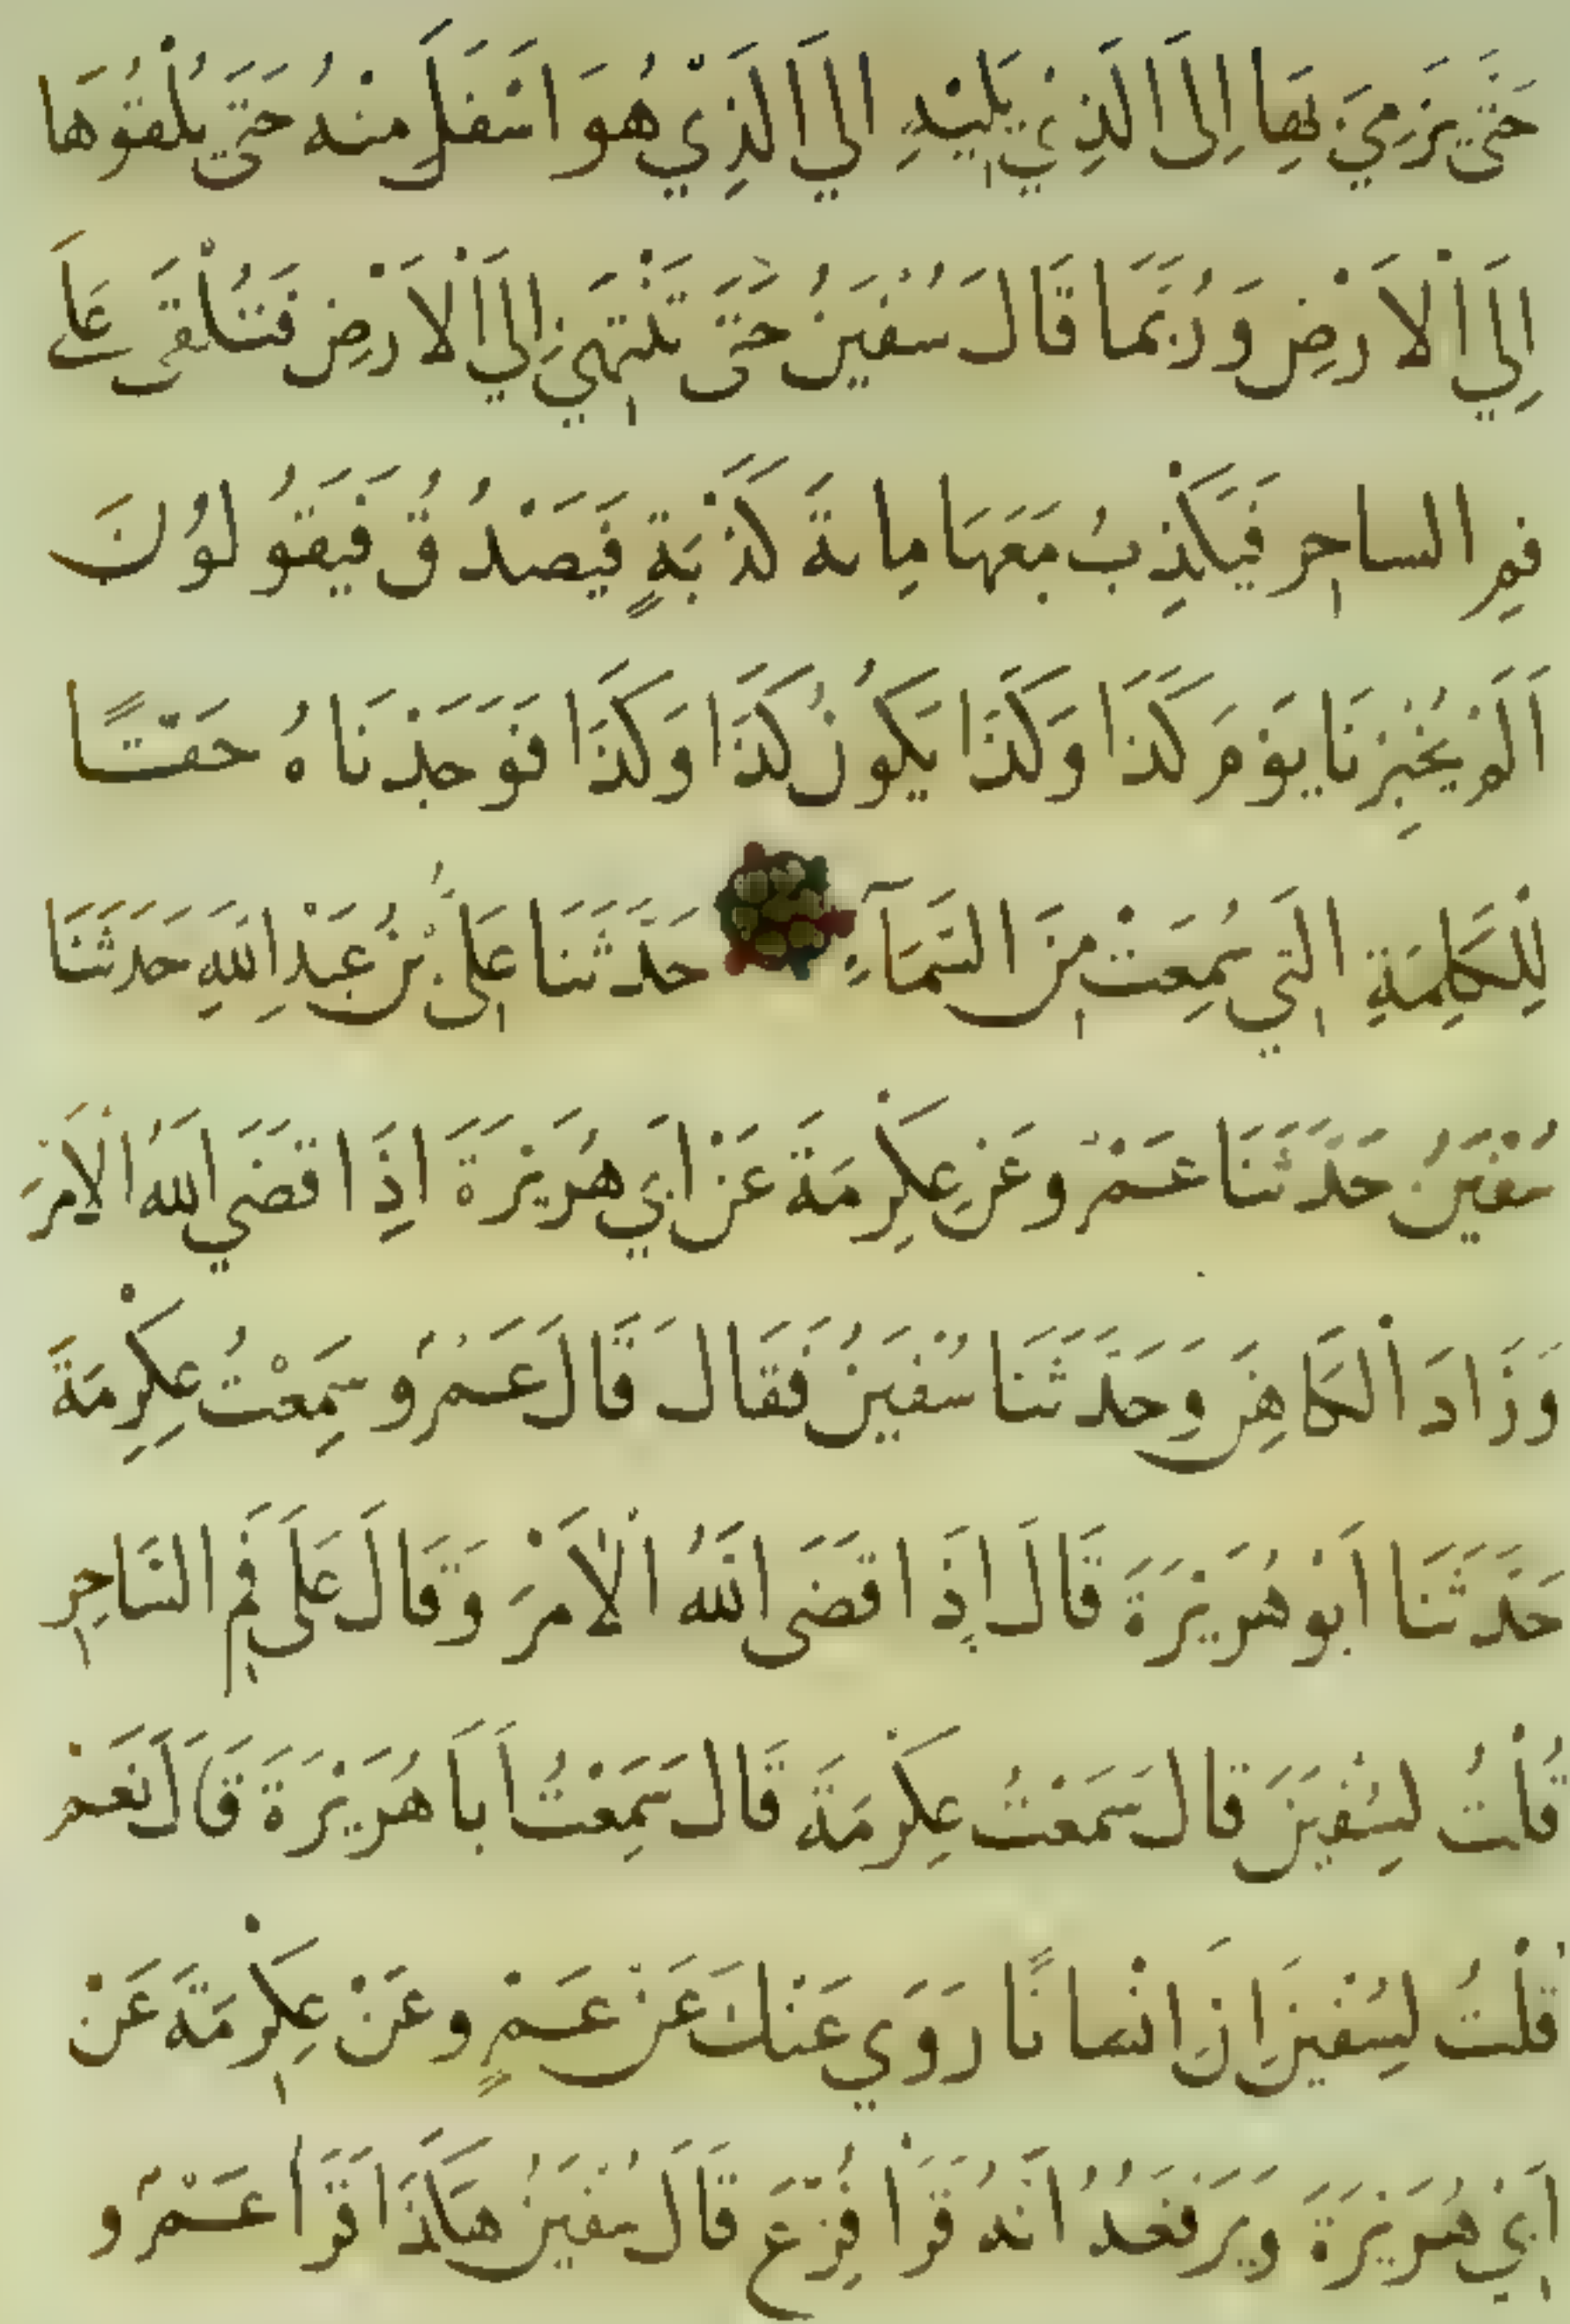 حَتَّى يَرْمِيَ بِهَا اِلَى الَّذِيْ يَلِيْهِ اِلَي الَّذِي هُوَ اَسْفَلَ مِنْهُ حَتَّي يُلْقُوْهَا
اِلَي الْاَرْضِ وَرُبَّمَا قَالَ سُفْيٰنُ حَتَّى تَنْتَهِيَ اِلَي الْاَرْضِ فَتُلْقَى عَلَے
فمِ الساحِر فَيَكْذِبُ مَعَهَا مِاىةَ كَذْبَةٍ فَيَصْدُقُ فَيَقُولُوْنَ
اَلَمْ يُخْبِرْنَا يَوْمَ كَذَا وَكَذَا يَكُوْنُ كَذَا وَكَذَا فَوَجَدْنَاهُ حَقًّا
لِلْكَلِمَةِ الَّتِي سُمِعَتْ مِنَ السَّمَآءِ حَدَّثَنَا عَلِىُّ بْنُ عَبْدِ اللّٰهِ حَدَّثَنَا
سُفْيَنُ حَدَّثَنَا عَمْرٌو عَنْ عِكْرِمَةَ عَنْ اَبِي هُرَيْرَةَ اِذَا قَضَي اللّٰهُ الْاَمْرَ
وَزَادَ الْكَاهِنَ وَحَدَّثَنَا سُفْيَنُ فَقَالَ قَالَ عَمْرٌو سَمِعْتُ عِكْرِمَةَ
حَدَّثَنَا اَبُو هُرَيْرَةَ قَالَ اِذَا قَضَى اللّٰهُ الْاَمْرَ وَقَالَ عَلَى فَمِ السَّاحِرِ
قُلْتُ لِسُفْيَنَ قَالَ سَمِعْتُ عِكْرِمَةَ قَالَ سَمِعْتُ اَبَا هُرَيْرَةَ قَالَ نَعَمْ
قُلْتُ لِسُفْيَنَ اِنَّ اِنْسَانًا رَوَي عَنْكَ عَنْ عَمْرٍو عَنْ عِكْرِمَةَ عَنْ
اَبِيْ هُرَيْرَةَ وَيَرْفَعُهُ اَنَّهُ قَرَأَ فُزِّعَ قَالَ سُفْيَنُ هٰكَذَا قَرَا عَمْرٌو